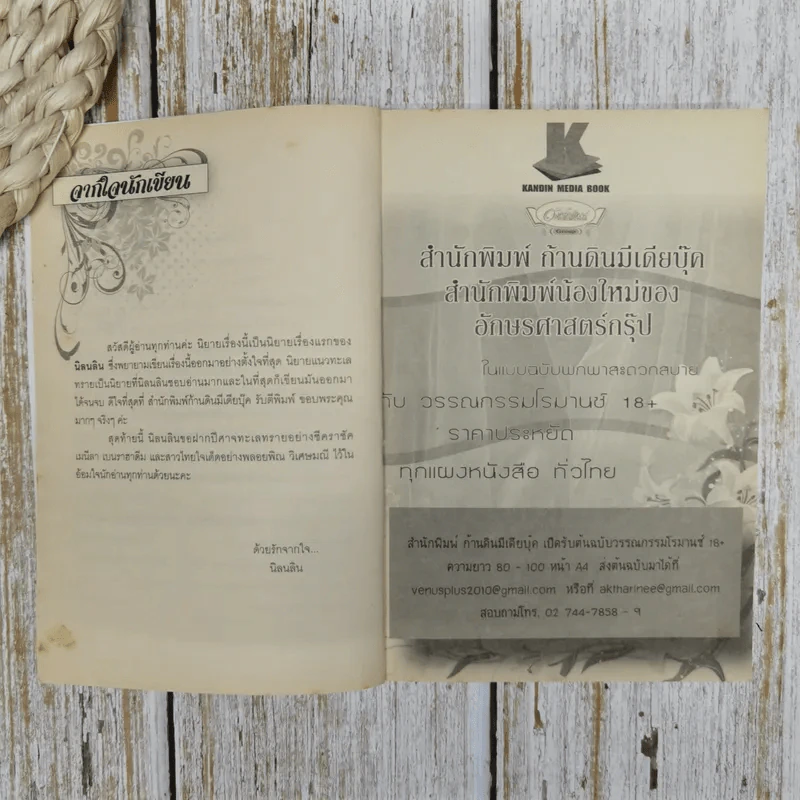 จากใจนักเขียน
สวัสดีผู้อ่านทุกท่านค่ะ นิยายเรื่องนี้เป็นนิยายเรื่องแรกของ
นิลนลิน ซึ่งพยายามเขียนเรื่องนี้ออกมาอย่างตั้งใจที่สุด นิยายแนวทะเล
ทรายเป็นนิยายที่นิลนลินชอบอ่านมากและในที่สุดก็เขียนมันออกมา
ได้จนจบ ดีใจที่สุดที่ สำนักพิมพ์ก้านดินมีเดียบุ๊ค รับตีพิมพ์ ขอบพระคุณ
มากๆ จริงๆ ค่ะ
สุดท้ายนี้ นิลนลินขอฝากปีศาจทะเลทรายอย่างชีคราชัค
เมนิลา เบนราฮาดิม และสาวไทยใจเด็ดอย่างพลอยพิณ วิเศษมณี ไว้ใน
อ้อมใจนักอ่านทุกท่านด้วยนะคะ
ด้วยรักจากใจ...
นิลนลิน
K
KANDIN MEDIA BOOK
สำนักพิมพ์ ก้านดินมีเดียบุ๊ค
สำนักพิมพ์น้องใหม่ของ
อักษรศาสตร์กรุ๊ป
ในแบบฉบับพกพาสะดวกสบาย
กับ วรรณกรรมโรมานซ์ 18+
ราคาประหยัด
ทุกแผงหนังสือ ทั่วไทย
สำนักพิมพ์ ก้านดินมีเดียบุ๊ค เปิดรับต้นฉบับวรรณกรรมโรมานซ์ 18+
ความยาว 80 - 100 หน้า A4 ส่งต้นฉบับมาได้ที่
venusplus2010@gmail.com หรือที่ aktharinee@gmail.com
สอบถามโทร. 02 744-7858 - 9